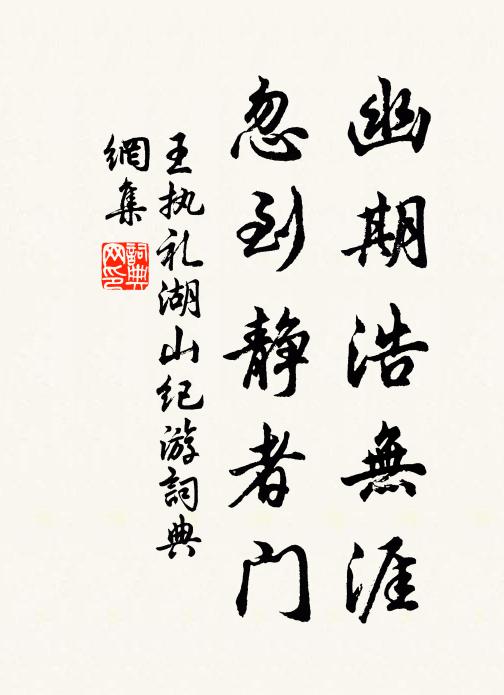 幽期浩無涯
忽到静者门
王执礼湖山纪游詞典
網集
詞典网印